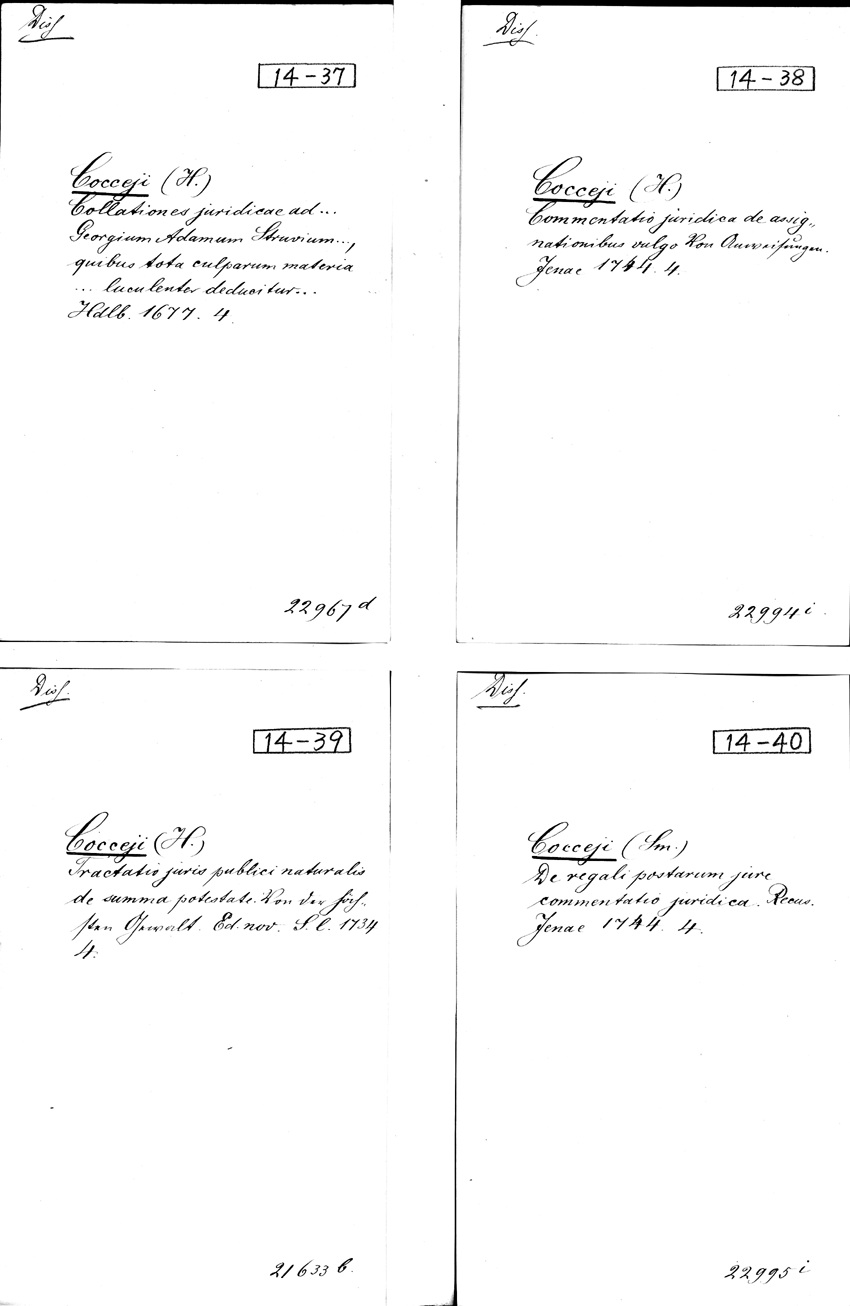 Diss.
14-37
Cocceji (H.)
Collationes juridicae ad...
Georgium Adamum Struvium...,
quibus tota culparum materia
... luculenter deducitur...
Hdlb. 1677. 4.
22967 d
Diss.
14-38
Cocceji (H.)
Commentatio juridica de assig„
nationibus vulgo Von Anweisungen.
Jenae 1744. 4.
22994 i
Diss.
14-39
Cocceji (H.)
Tractatio juris publici naturalis
de summa potestate. Von der höch„
sten Gewalt. Ed. nov. S. l. 1734
4.
21633 b.
Diss.
14-40
Cocceji (Sm.)
De regali postarum jure
commentatio juridica. Recus.
Jenae 1744. 4.
22995 i